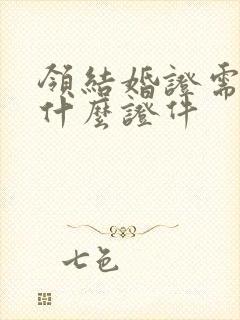 領結婚證需
什麼證件
七色